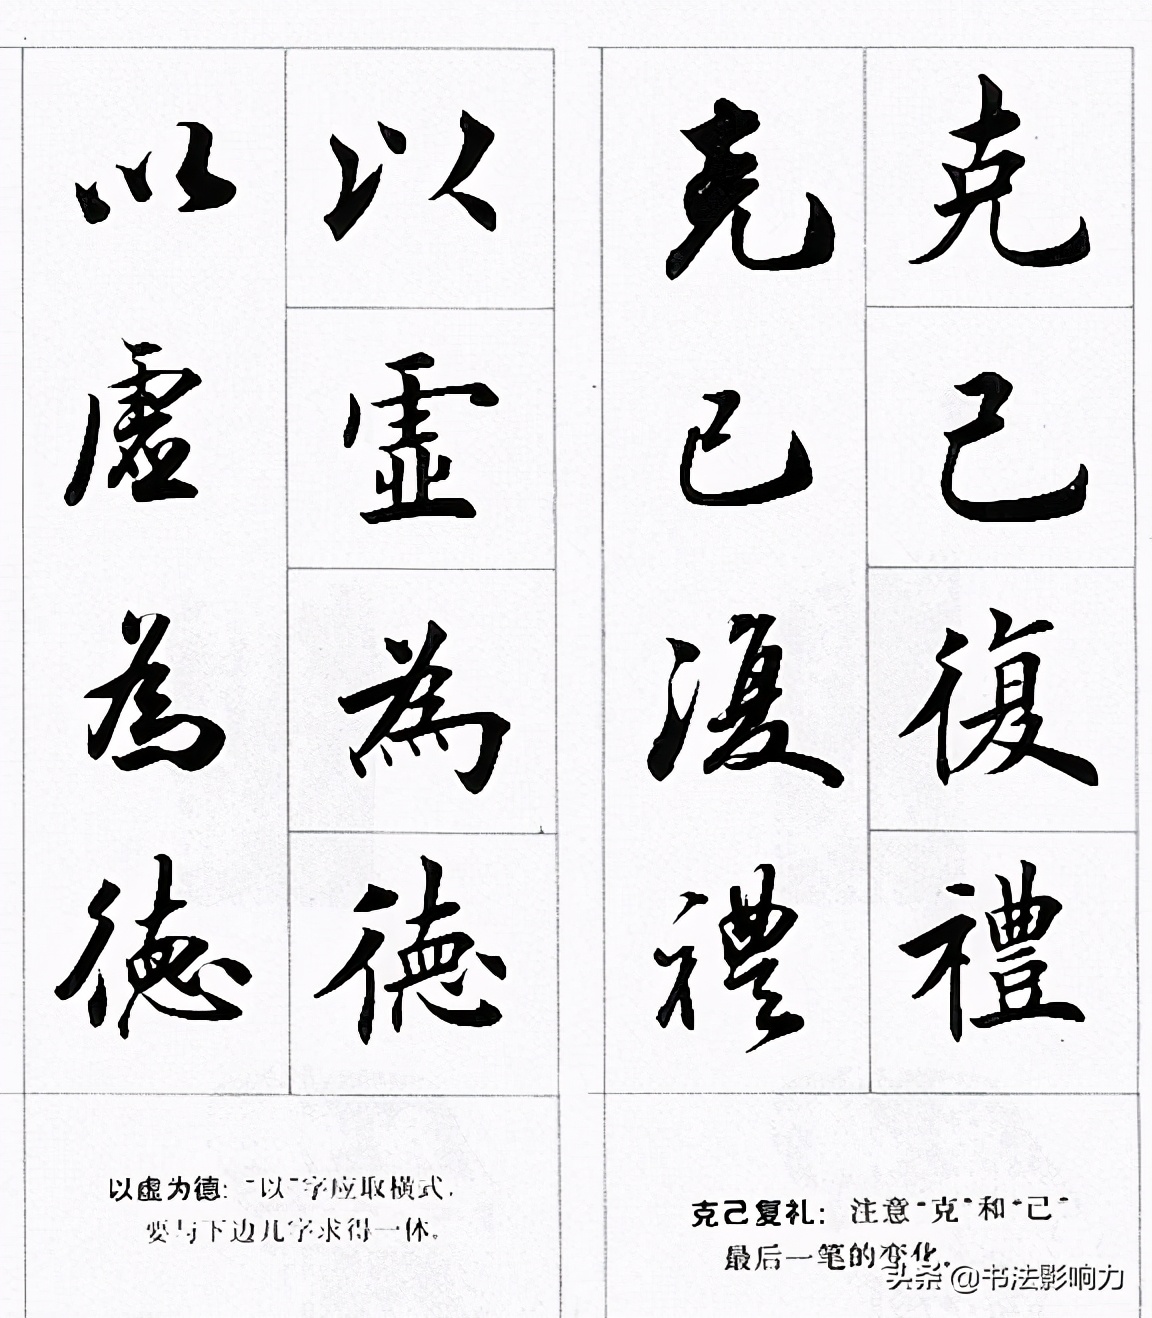 克己復禮
克己復禮
以虛為德
以虛為德
克己复礼：注意“克”和“己”
最后一笔的变化。
以虚为德：“以”字应取横式，
要与下边几字求得一体。
头条 @书法影响力